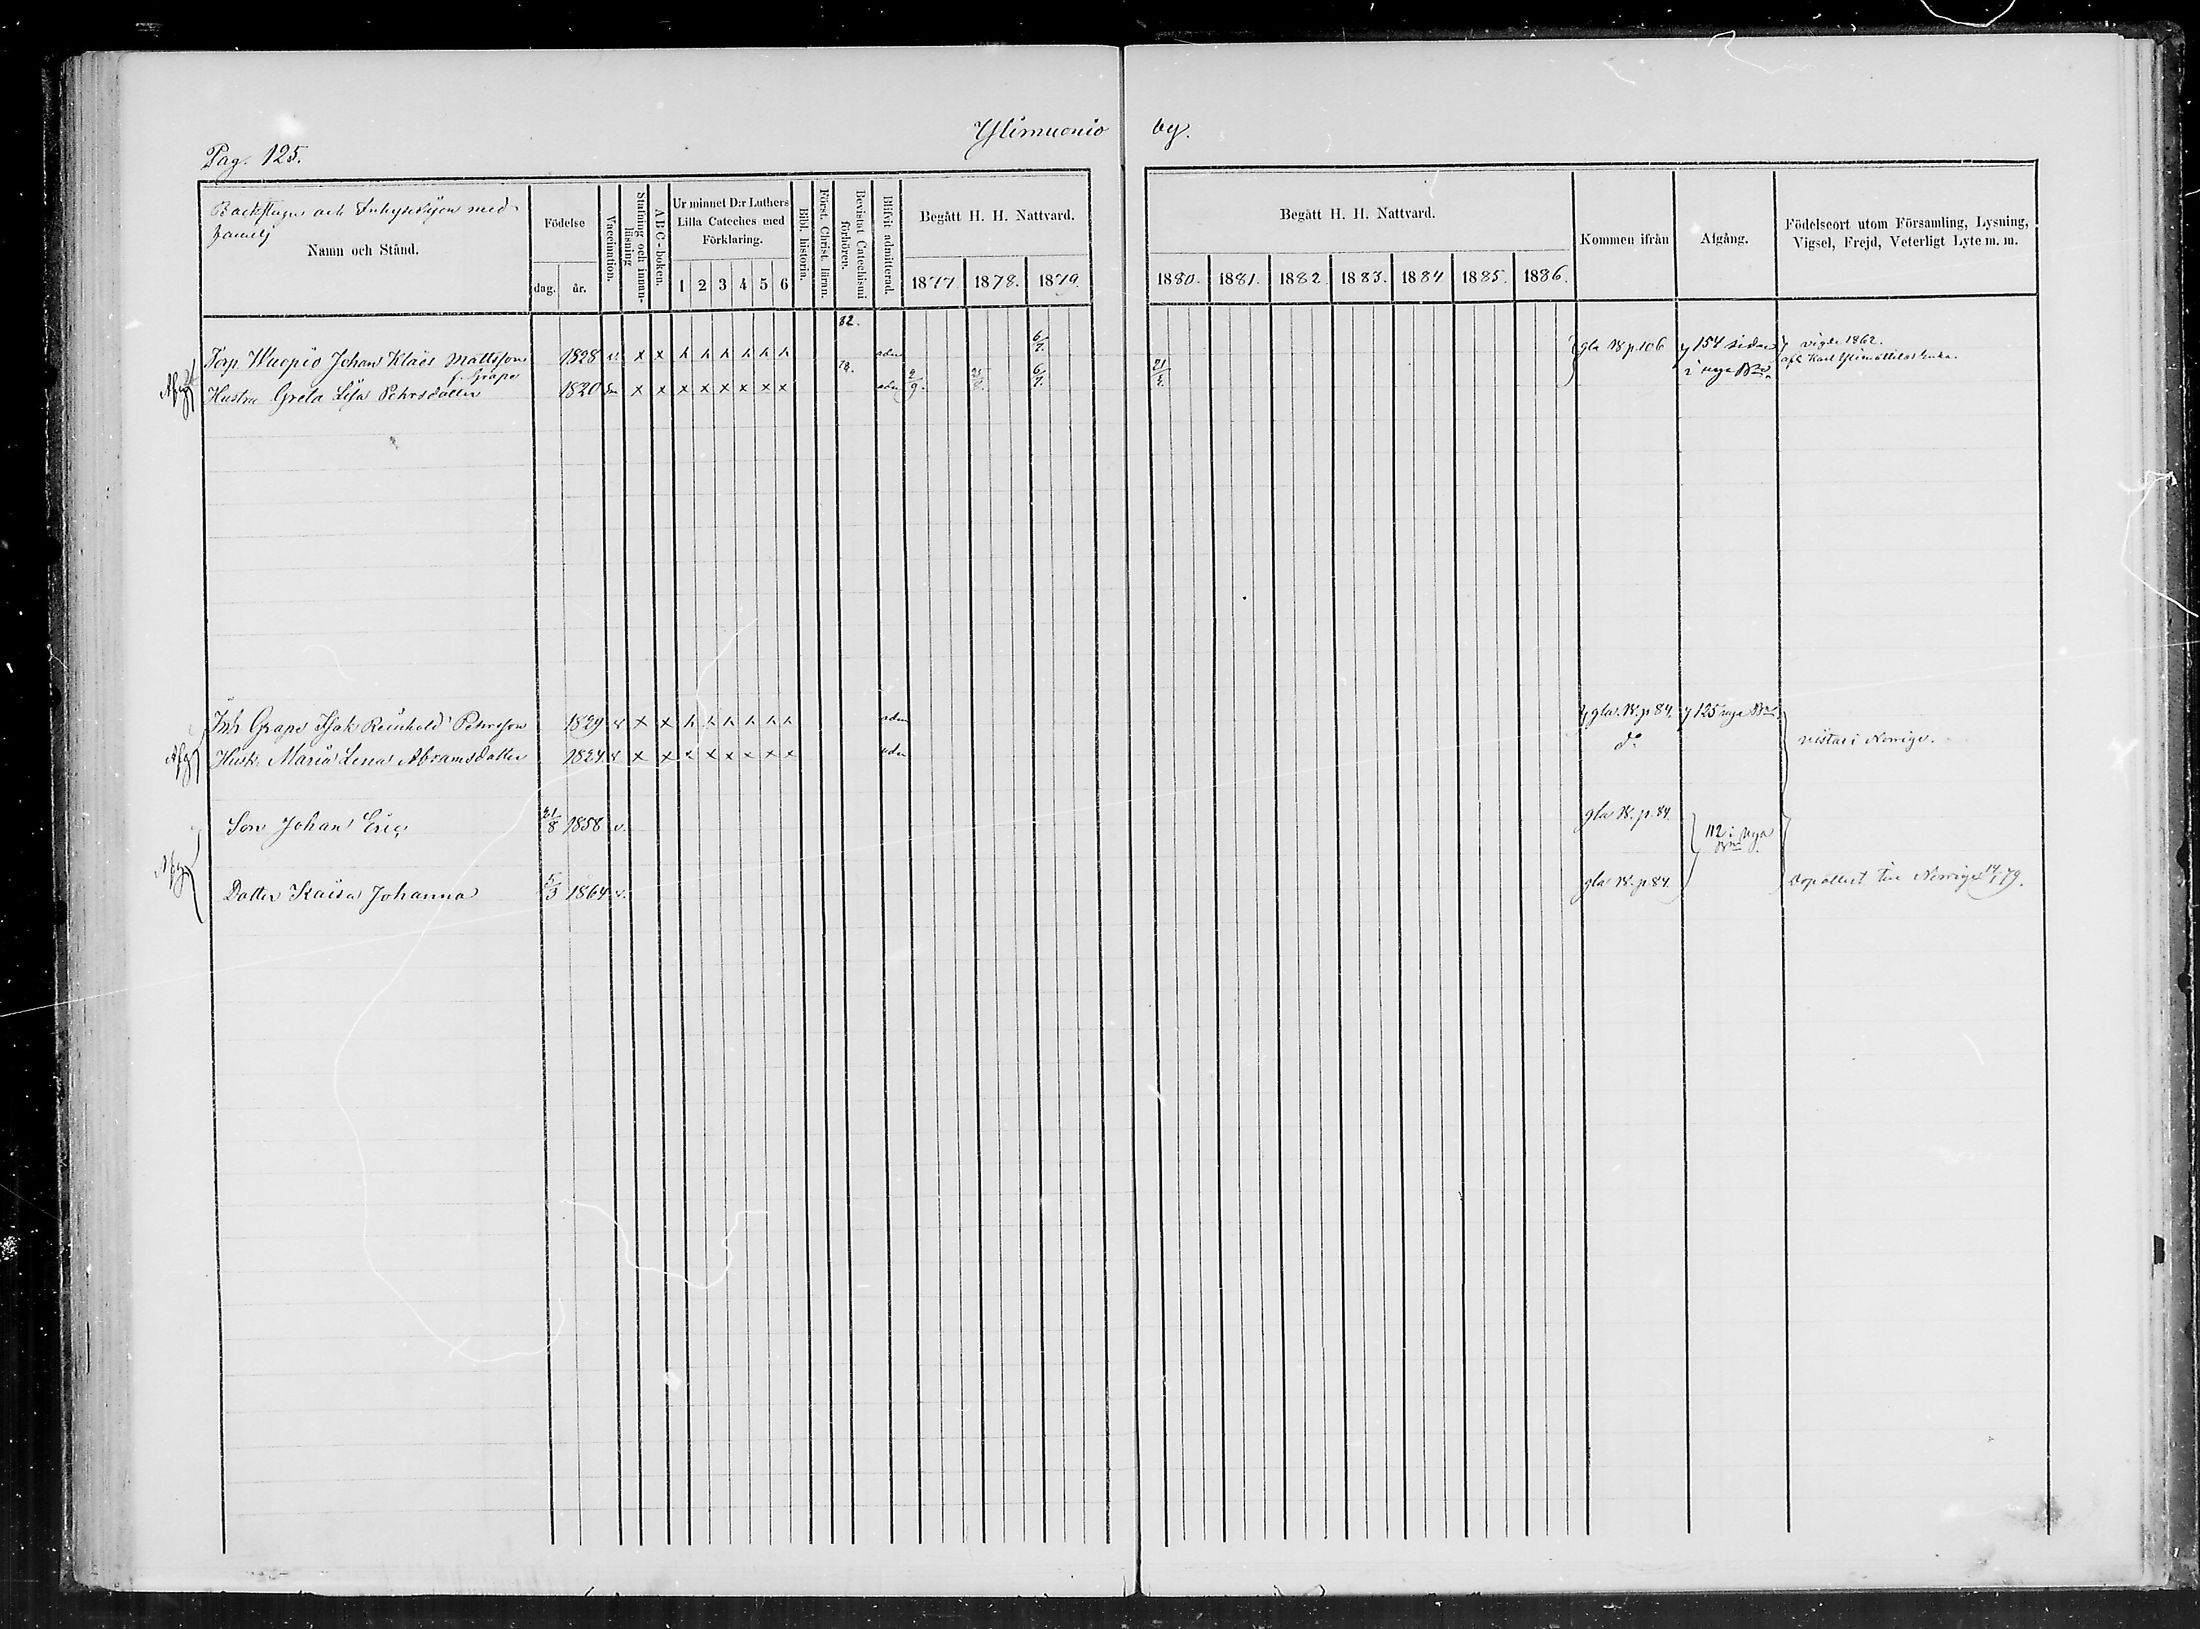 Ylimuonio by.
Pag. 125.
Backstugu och Inhyseshjon med
familj
Namn och Stånd.
Födelse
dag. år.
Vaccination.
Stafning och innan-
läsning
ABC-boken.
Ur minnet D:r Luthers
Lilla Cateches med
Förklaring.
1 2 3 4 5 6
Bibl. historia.
Först. Christ. läran.
Bevistat Catechismi
förhören.
Blifvit admitterad.
Begått H. H. Nattvard.
1877. 1878. 1879.
Begått H. H. Nattvard.
1880. 1881. 1882. 1883. 1884 1885. 1886.
Kommen ifrån
Afgång.
Födelseort utom Församling, Lysning,
Vigsel, Frejd, Veterligt Lyte m. m.
82.
Torp. Wuopio Johan Klaes Mattsson 1828 v. x x h h h h h h adm 6/7. gla B. p. 106 154 sidan vigde 1862.
i nya B.
f. Grape
Hustru Greta Lisa Pehrsdotter 1820 x x x x x x x x adm 2/9. 6/7. 21/3.
Inh Grape Isak Reinhold Pehrsson 1829 v x x h h h h h h adm gla. B. p 84. 125 nya B.
Hustr. Maria Lena Abramsdotter 1824 v x x x x x x x x adm d:o vistas i Norrige.
Son Johan Eric 21/8 1858 v. gla B. p. 84.
112 i nya
Afg
Dotter Kaisa Johanna 5/3 1864 v. gla B. p 84. till Norrige 14/1 79.